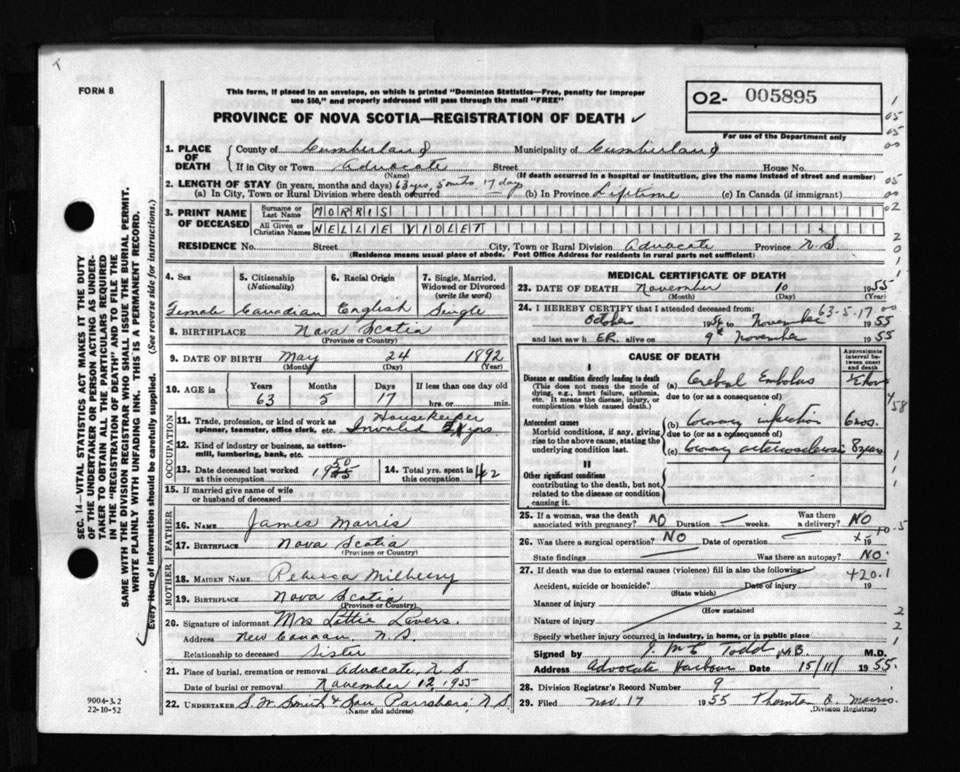 T
FORM 8
This form, if placed in an envelope, on which is printed "Dominion Statistics—Free, penalty for improper
use $50," and properly addressed will pass through the mail "FREE"
PROVINCE OF NOVA SCOTIA—REGISTRATION OF DEATH ✓
O2- 005895
For use of the Department only
1. PLACE OF DEATH
County of Cumberland Municipality of Cumberland
If in City or Town Advocate Street House No.
(Name) (If death occurred in a hospital or institution, give the name instead of street and number)
2. LENGTH OF STAY (in years, months and days) 63 yrs, 5 mths 17 days
(a) In City, Town or Rural Division where death occurred (b) In Province Lifetime (c) In Canada (if immigrant)
3. PRINT NAME OF DECEASED
Surname or Last Name MORRIS
All Given or Christian Names NELLIE VIOLET
RESIDENCE No. Street City, Town or Rural Division Advocate Province N.S.
(Residence means usual place of abode. Post Office Address for residents in rural parts not sufficient)
4. Sex
Female
5. Citizenship (Nationality)
Canadian
6. Racial Origin
English
7. Single, Married, Widowed or Divorced (write the word)
Single
8. BIRTHPLACE Nova Scotia
(Province or Country)
9. DATE OF BIRTH May 24 1892
(Month) (Day) (Year)
10. AGE in Years Months Days If less than one day old
63 5 17 hrs. or min.
OCCUPATION
11. Trade, profession, or kind of work as spinner, teamster, office clerk, etc. Housekeeper
Invalid yrs
12. Kind of industry or business, as cotton-mill, lumbering, bank, etc.
13. Date deceased last worked at this occupation 1950
14. Total yrs. spent in this occupation 42
15. If married give name of wife or husband of deceased
FATHER
16. NAME James Morris
17. BIRTHPLACE Nova Scotia
(Province or Country)
MOTHER
18. MAIDEN NAME Rebecca Milberry
19. BIRTHPLACE Nova Scotia
(Province or Country)
20. Signature of informant Mrs Lottie Levers.
Address New Canaan, N.S.
Relationship to deceased Sister
21. Place of burial, cremation or removal Advocate, N S
Date of burial or removal November 12, 1955
22. UNDERTAKER S. W. Smith & Son Parrsboro, N.S
(Name and address)
MEDICAL CERTIFICATE OF DEATH
23. DATE OF DEATH November 10 1955
(Month) (Day) (Year)
24. I HEREBY CERTIFY that I attended deceased from: 63-5-17
October 19 to November 1955
and last saw h ER. alive on 9th November 1955
CAUSE OF DEATH
Approximate interval between onset and death
I
Disease or condition directly leading to death
(This does not mean the mode of dying, e.g., heart failure, asthenia, etc. It means the disease, injury, or complication which caused death.)
(a) Cerebral Embolus
due to (or as a consequence of)
Antecedent causes
Morbid conditions, if any, giving rise to the above cause, stating the underlying condition last.
(b) Coronary infarction
due to (or as a consequence of)
(c) Coronary arteriosclerosis 8 years
II
Other significant conditions
contributing to the death, but not related to the disease or condition causing it.
25. If a woman, was the death associated with pregnancy? NO Duration weeks. Was there a delivery? NO
26. Was there a surgical operation? NO Date of operation 19
State findings Was there an autopsy? NO.
27. If death was due to external causes (violence) fill in also the following 420.1
Accident, suicide or homicide? Date of injury 19
(State which)
Manner of injury
(How sustained
Nature of injury
Specify whether injury occurred in industry, in home, or in public place
Signed by J. Todd M.B. M.D.
Address Advocate Harbour Date 15/11/ 1955.
28. Division Registrar's Record Number 9
29. Filed Nov. 17 1955 Thornton B. Morris.
(Division Registrar)
SEC. 14—VITAL STATISTICS ACT MAKES IT THE DUTY
OF THE UNDERTAKER OR PERSON ACTING AS UNDER-
TAKER TO OBTAIN ALL THE PARTICULARS REQUIRED
IN THE "REGISTRATION OF DEATH" AND TO FILE THE
SAME WITH THE DIVISION REGISTRAR WHO SHALL ISSUE THE BURIAL PERMIT.
WRITE PLAINLY WITH UNFADING INK. THIS IS A PERMANENT RECORD.
Every item of information should be carefully supplied. (See reverse side for instructions.)
9004-3.2
22-10-52